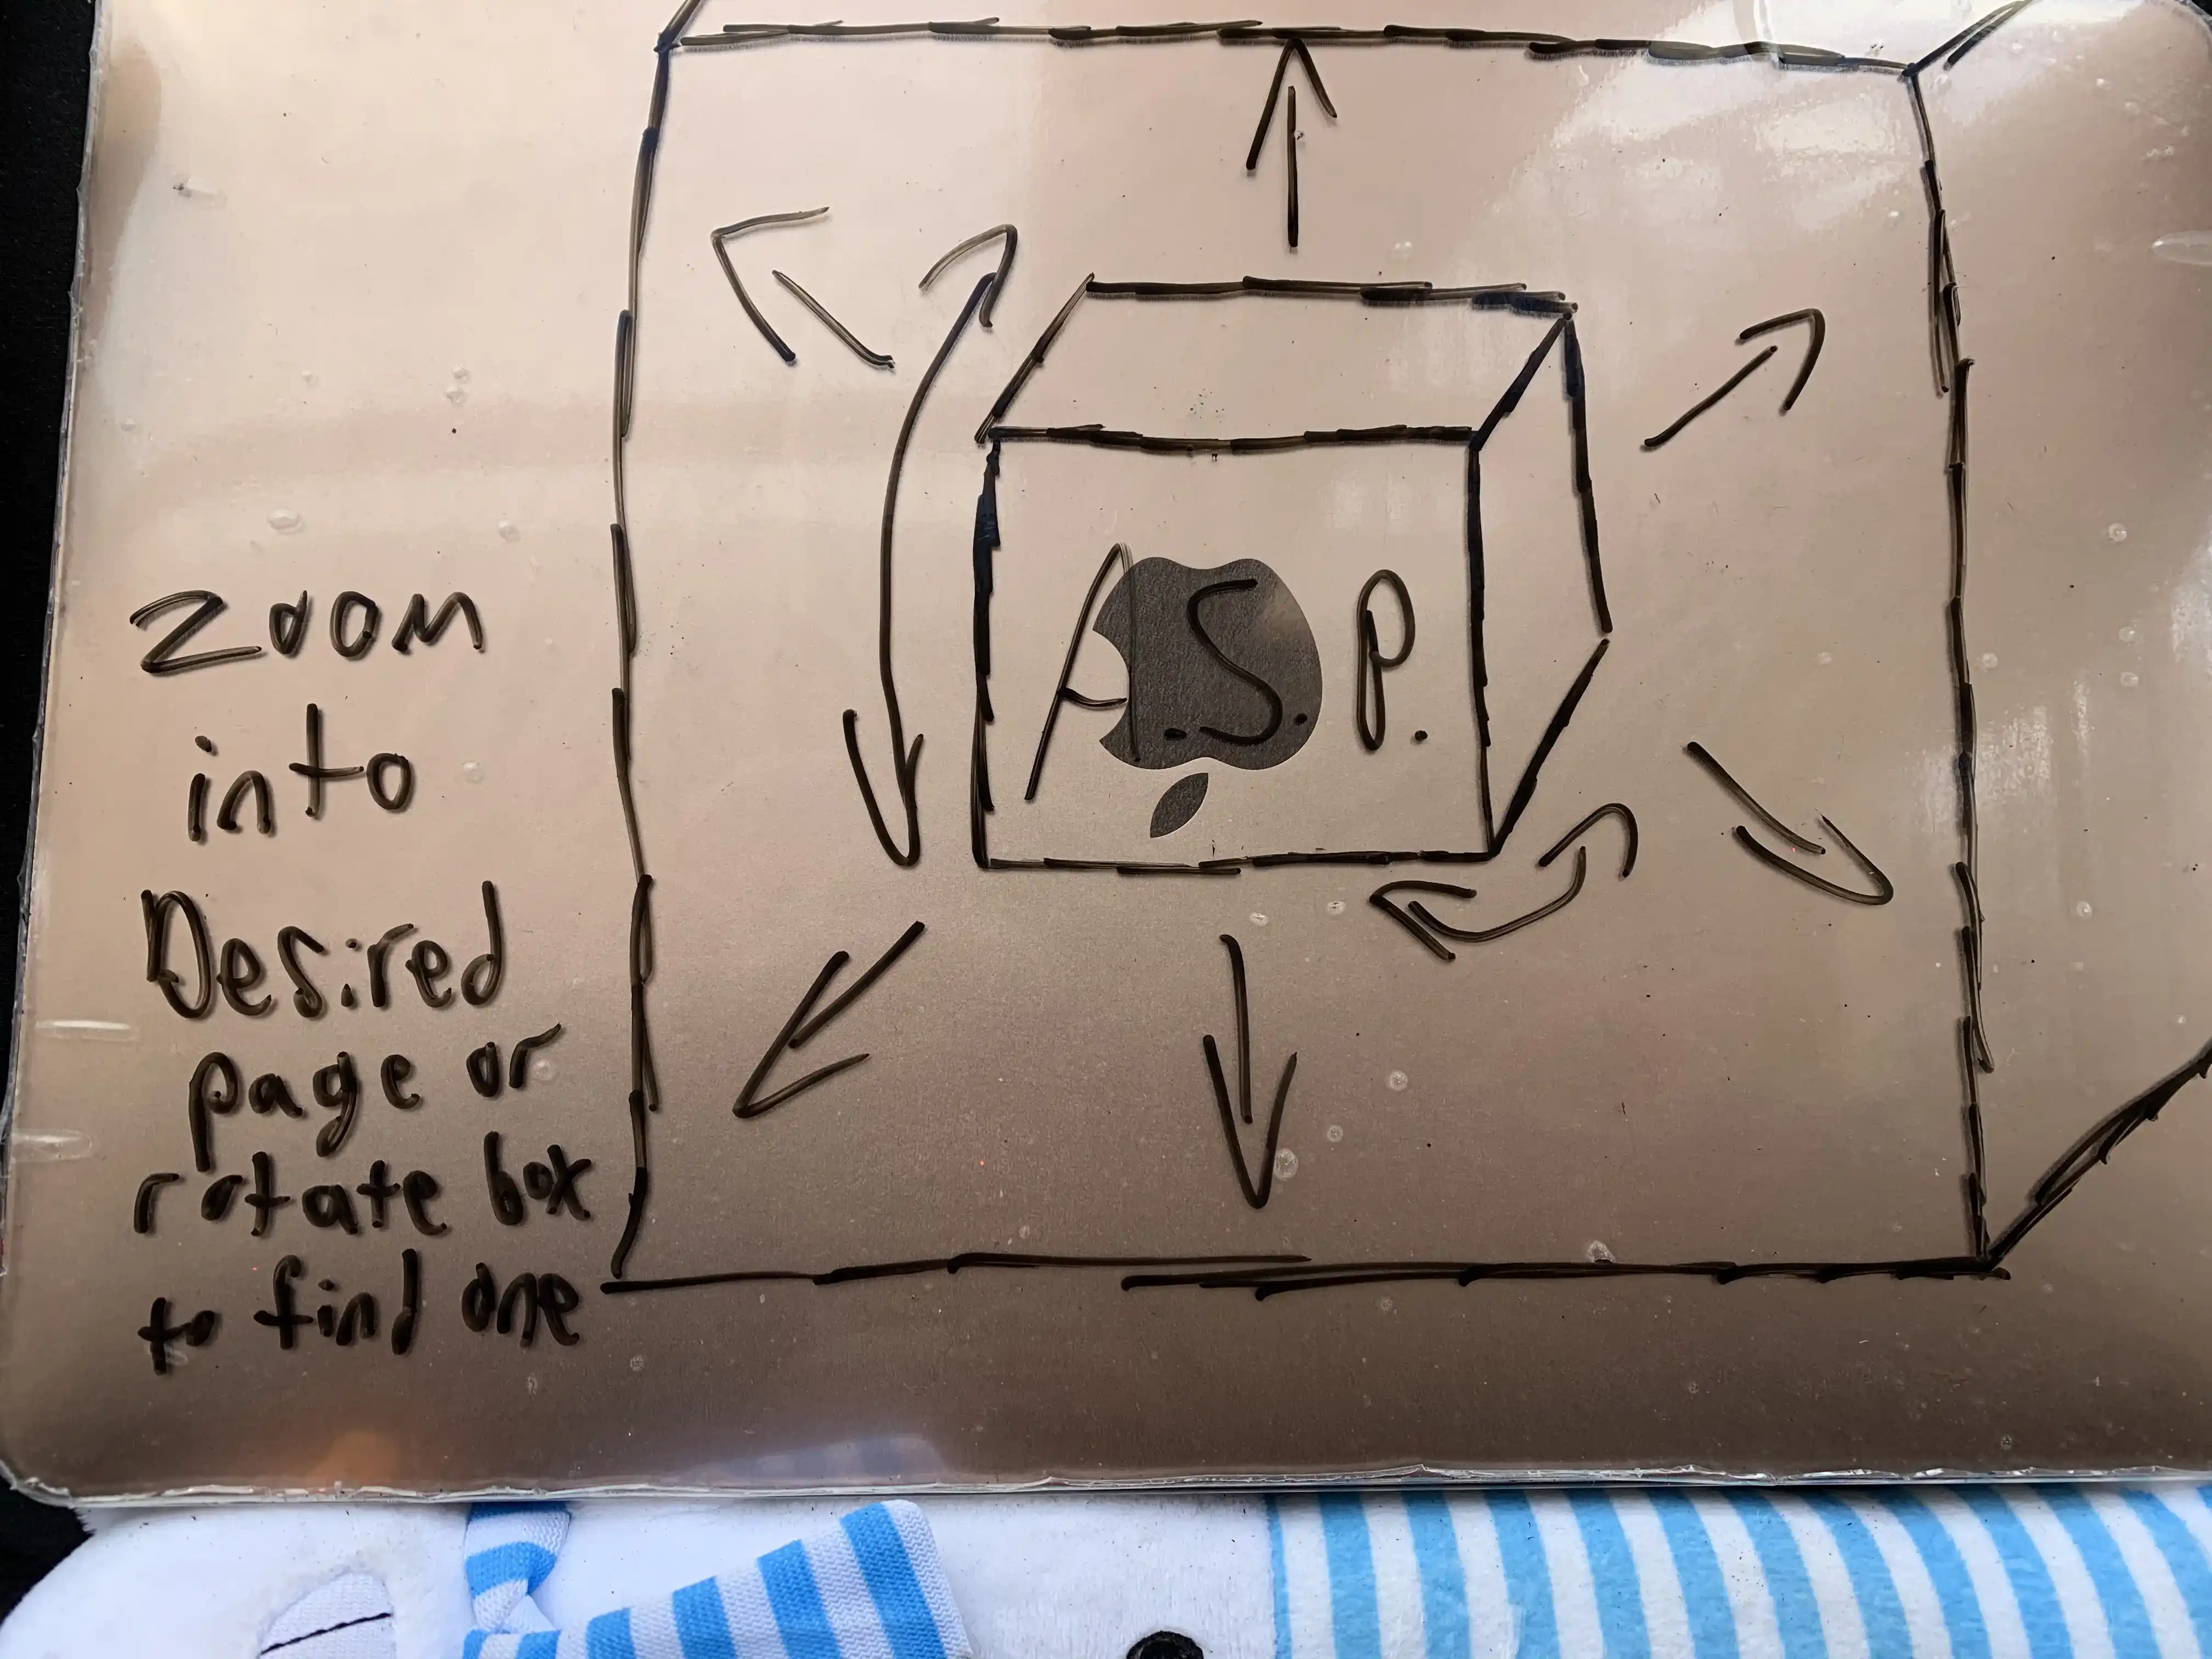 Zoom
into
Desired
page or
rotate box
to find one
A.S.P.